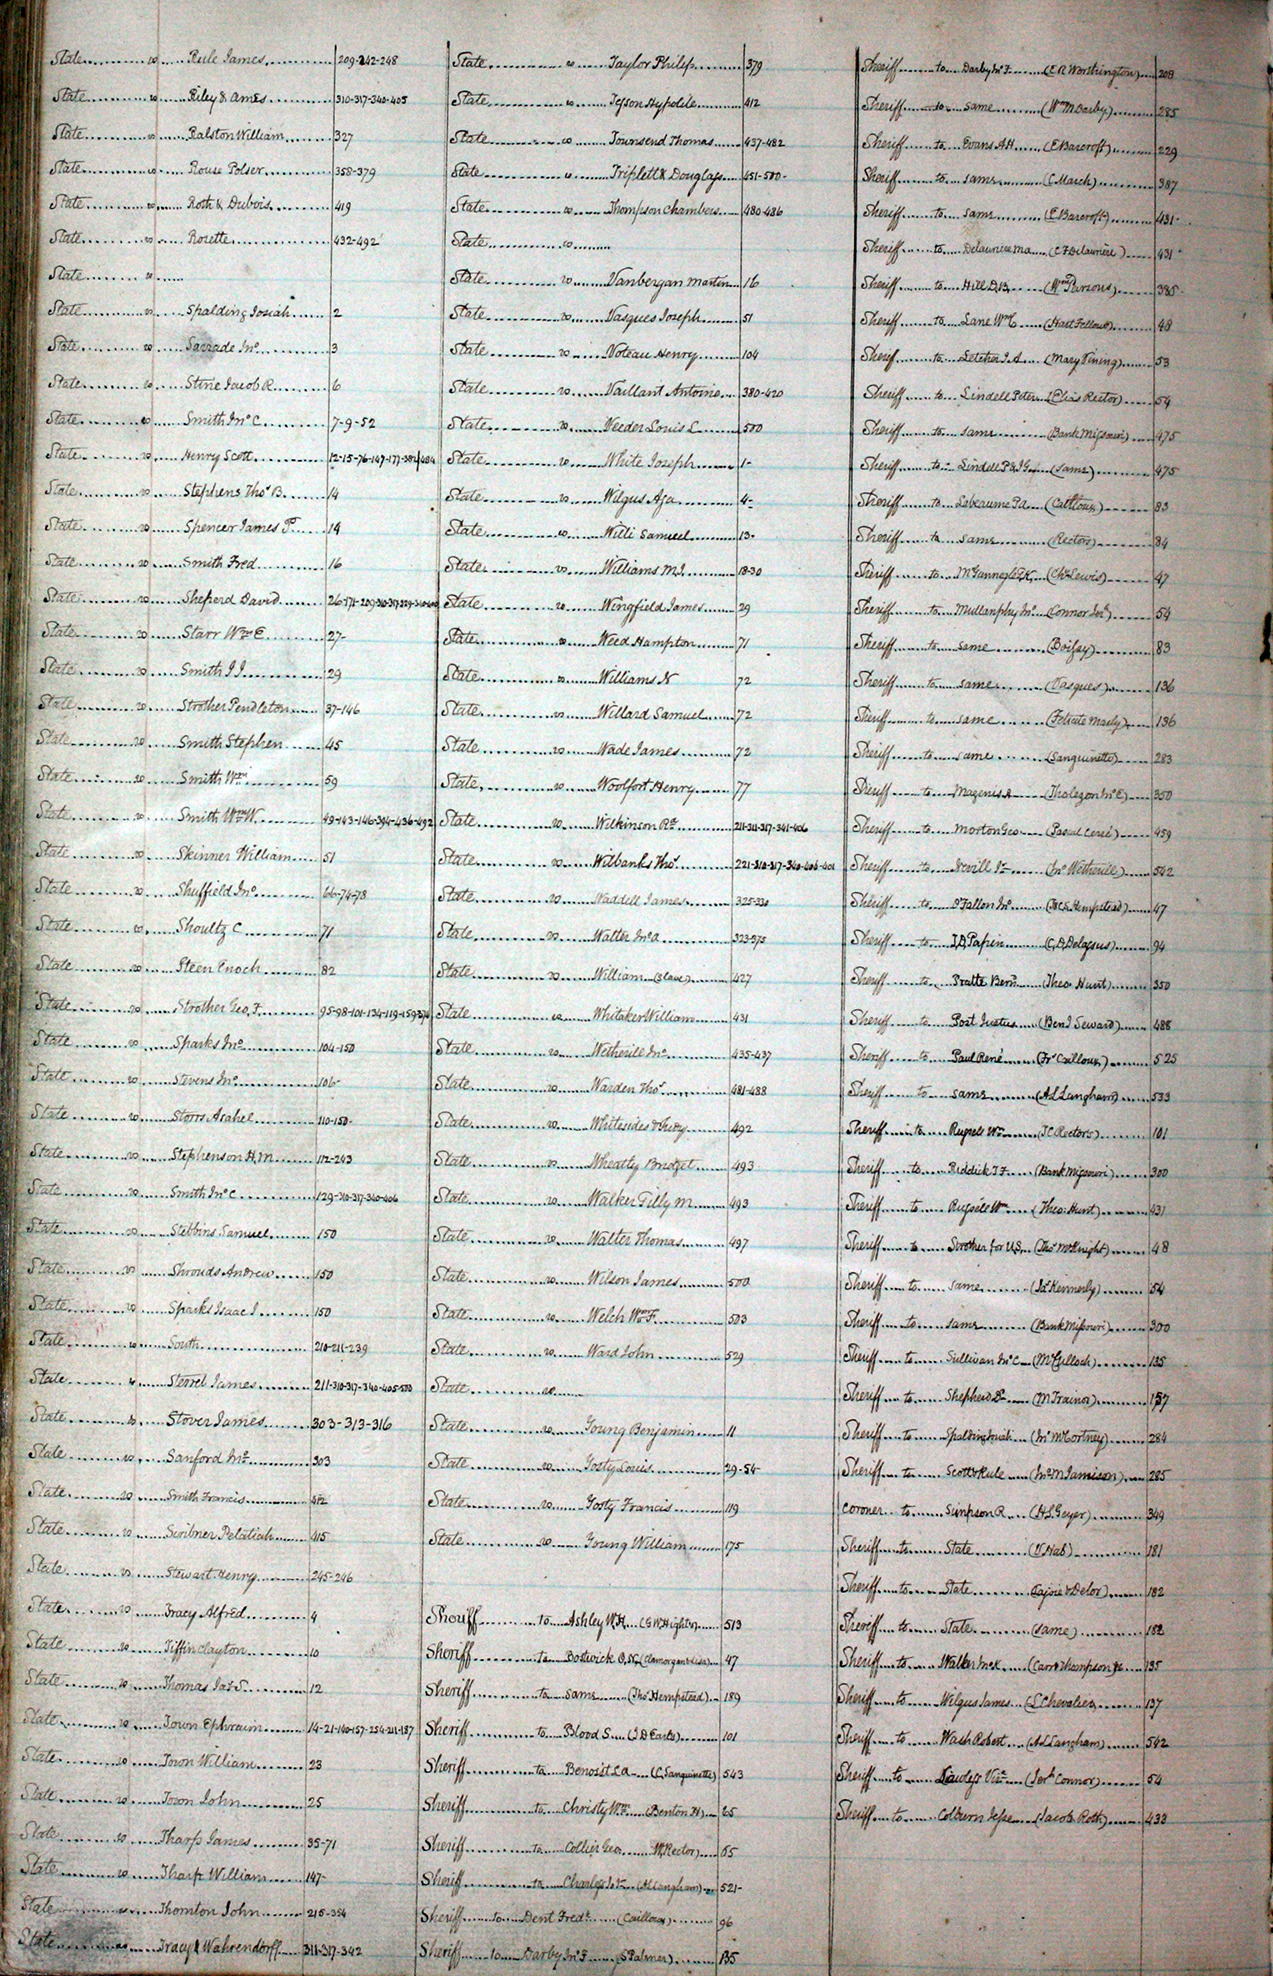 State vs Rule James 209-242-248
State vs Riley & Ames 310-317-340-405
State vs Ralston William 327
State vs Rouse Polser 358-379
State vs Roth & Dubois 419
State vs Rozette 432-492
State vs
State vs Spalding Josiah 2
State vs Sarrade Jno 3
State vs Stine Jacob R 6
State vs Smith Jno C 7-9-52
State vs Henry Scott
State vs Stephens Thos B. 14
State vs Spencer James P 14
State vs Smith Fred 16
State vs Sheperd David
State vs Starr Wm E 27-
State vs Smith J J 29
State vs Strother Pendleton 37-146
State vs Smith Stephen 45
State vs Smith Wm 59
State vs Smith Wm W. 49-143-146-394-436-492
State vs Skinner William 51
State vs Shuffield Jno 66-74-78
State vs Shoultz C 71
State vs Steen Enoch 82
State vs Strother Geo. F.
State vs Sparks Jno 104-150
State vs Stevens Jno 106-
State vs Storrs Asahel 110-150-
State vs Stephenson H. M. 112-243
State vs Smith Jno C 129-310-317-340-406
State vs Stebbins Samuel 150
State vs Shrouds Andrew 150
State vs Sparks Isaac J 150
State vs South 210-211-239
State vs Sterrel James 211-310-317-340-405-500
State vs Stover James 303-313-316
State vs Sanford Jno 303
State vs Smith Francis 412
State vs Scribner Pelatiah 415
State vs Stewart Henry 245-246
State vs Tracy Alfred 4
State vs Tiffin Clayton 10
State vs Thomas Jas S. 12
State vs Town Ephraim
State vs Town William 23
State vs Town John 25
State vs Tharp James 35-71
State vs Tharp William 147-
State vs Thornton John 215-354
State vs Tracy & Wahrendorff 311-317-342
State vs Taylor Philip 379
State vs Tesson Hypolite 412
State vs Townsend Thomas 437-482
State vs Triplett & Douglass 451-500-
State vs Thompson Chambers 480-486
State vs
State vs Vanbergan Martin 16
State vs Vasques Joseph 51
State vs Voteau Henry 104
State vs Vaillant Antoine 380-420
State vs Veeder Louis L 500
State vs White Joseph 1-
State vs Wilgus Asa 4-
State vs Willi Samuel 13-
State vs Williams M. J. 18-30
State vs Wingfield James 29
State vs Weed Hampton 71
State vs Williams N 72
State vs Willard Samuel 72
State vs Wade James 72
State vs Woolfort Henry 77
State vs Wilkinson Rd 211-311-317-341-406
State vs Wilbanks Thos 221-310-317-340-406-401
State vs Waddell James 325-330
State vs Walter Jno A 323-375
State vs William (Slave) 427
State vs Whitaker William 431
State vs Wetherill Jno 435-437
State vs Warden Thos 481-488
State vs Whitesides & 492
State vs Wheatly Bridget 493
State vs Walker Tilly M 493
State vs Walter Thomas 497
State vs Wilson James 500
State vs Welch Wm F. 503
State vs Ward John 529
State vs
State vs Young Benjamin 11
State vs Yosty Louis 29-54-
State vs Yosty Francis 119
State vs Young William 175
Sheriff to Ashley W. H. (G W Hight) 513
Sheriff to Bostwick O. N. (Clamorgan & Lisa) 47
Sheriff to same (Thos Hempstead) 189
Sheriff to Blood S. (J D Earls) 101
Sheriff to Benoist L A (C. Sanguinette) 543
Sheriff to Christy Wm (Benton H) 65
Sheriff to Collier Geo. W. Rector) 65
Sheriff to Charless Jos (A L Langham) 521-
Sheriff to Dent Fredk (Cailloux) 96
Sheriff to Darby Jno F (S Palmer) 135
Sheriff to Darby Jno F (E R Worthington) 208
Sheriff to same (Wm M Darby) 285
Sheriff to Evans A H (E Barcroft) 229
Sheriff to same (C March) 387
Sheriff to same (E Barcroft) 431-
Sheriff to Delauriere Ma (C F Delauriere) 431
Sheriff to Hill D. B. (Wm Parsons) 385
Sheriff to Lane Wm C (Hart Fellows) 48
Sheriff to Letcher J. A. (Mary Vining) 53
Sheriff to Lindell Peter (Elias Rector) 54
Sheriff to same (Bank Missouri) 475
Sheriff to Lindell P & J G (same) 475
Sheriff to Labeaume Pa (Cailloux) 83
Sheriff to same (Rectors) 84
Sheriff to McGunnegle (Chs Lewis) 47
Sheriff to Mullanphy Jno (Connor Jer) 54
Sheriff to same (Boissy) 83
Sheriff to same (Vasques) 136
Sheriff to same (Felicite Macly) 136
Sheriff to same (Sanguinette) 283
Sheriff to Magenis A (Tholozon Jno E) 350
Sheriff to Morton Geo (Pascal Ceré) 459
Sheriff to (Jno Wetherill) 542
Sheriff to O'Fallon Jno (Hempstead) 47
Sheriff to J. B. Papin (C. D. Delassus) 94
Sheriff to Pratte Bern. (Theo. Hunt) 350
Sheriff to Post Justus (Benj Seward) 488
Sheriff to Paul René (Fr Cailloux) 525
Sheriff to same (A L Langham) 533
Sheriff to Russell Wm (J C Rectors) 101
Sheriff to Riddick T F (Bank Missouri) 300
Sheriff to Russell Wm (Theo. Hunt) 431
Sheriff to Strother for U.S. (Thos McKnight) 48
Sheriff to same (Jas Kennerly) 54
Sheriff to same (Bank Missouri) 300
Sheriff to Sullivan Jno C (McCulloch) 135
Sheriff to Shepherd (M Trainor) 157
Sheriff to Spalding Josiah (Jno McCortney) 284
Sheriff to Scott & Rule (Jno M Jamison) 285
Coroner to Simpson R. (H. S. Geyer) 349
Sheriff to State (V. Hab) 181
Sheriff to State (Cajoie & Delor) 182
Sheriff to State (same) 182
Sheriff to Walker Jno K (Carr & Thompson 135
Sheriff to Wilgus James (L Chevalier 137
Sheriff to Wash Robert (A L Langham) 542
Sheriff to (Jerh Connor) 54
Sheriff to Colburn Jesse (Jacob Roth) 433